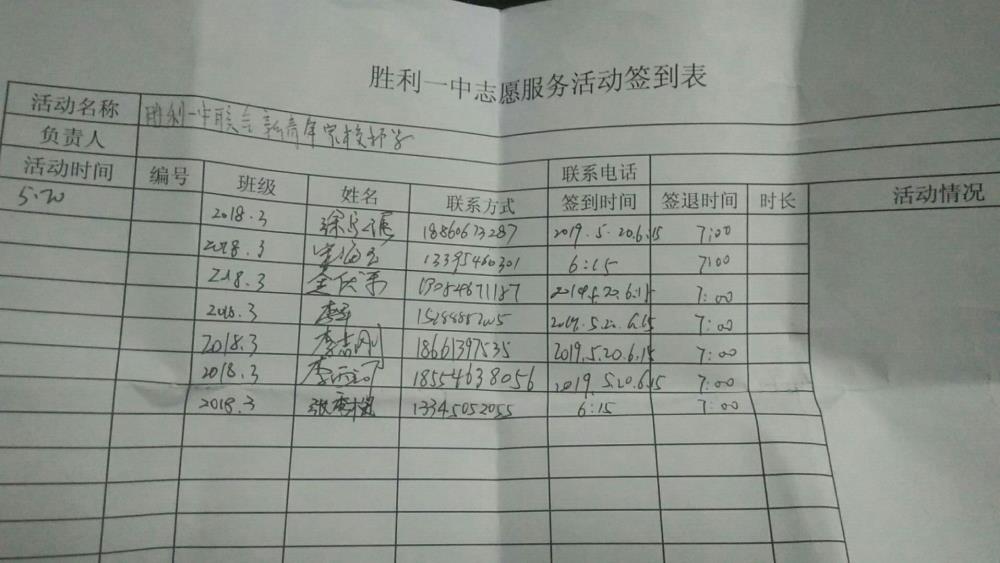 胜利一中志愿服务活动签到表
活动名称 胜利一中联合新青年
负责人 联系电话
活动时间 编号 班级 姓名 联系方式 签到时间 签退时间 时长 活动情况
5.20 2018.3 18860673287 2019.5.20.6.15 7:00
2018.3 13395460301 6:15 7:00
2018.3 2019.5.20.6.15 7:00
2018.3 2019.5.20.6.15 7:00
2018.3 李志刚 18661397535 2019.5.20.6.15 7:00
2018.3 18554638056 2019.5.20.6.15 7:00
2018.3 13345052055 6:15 7:00